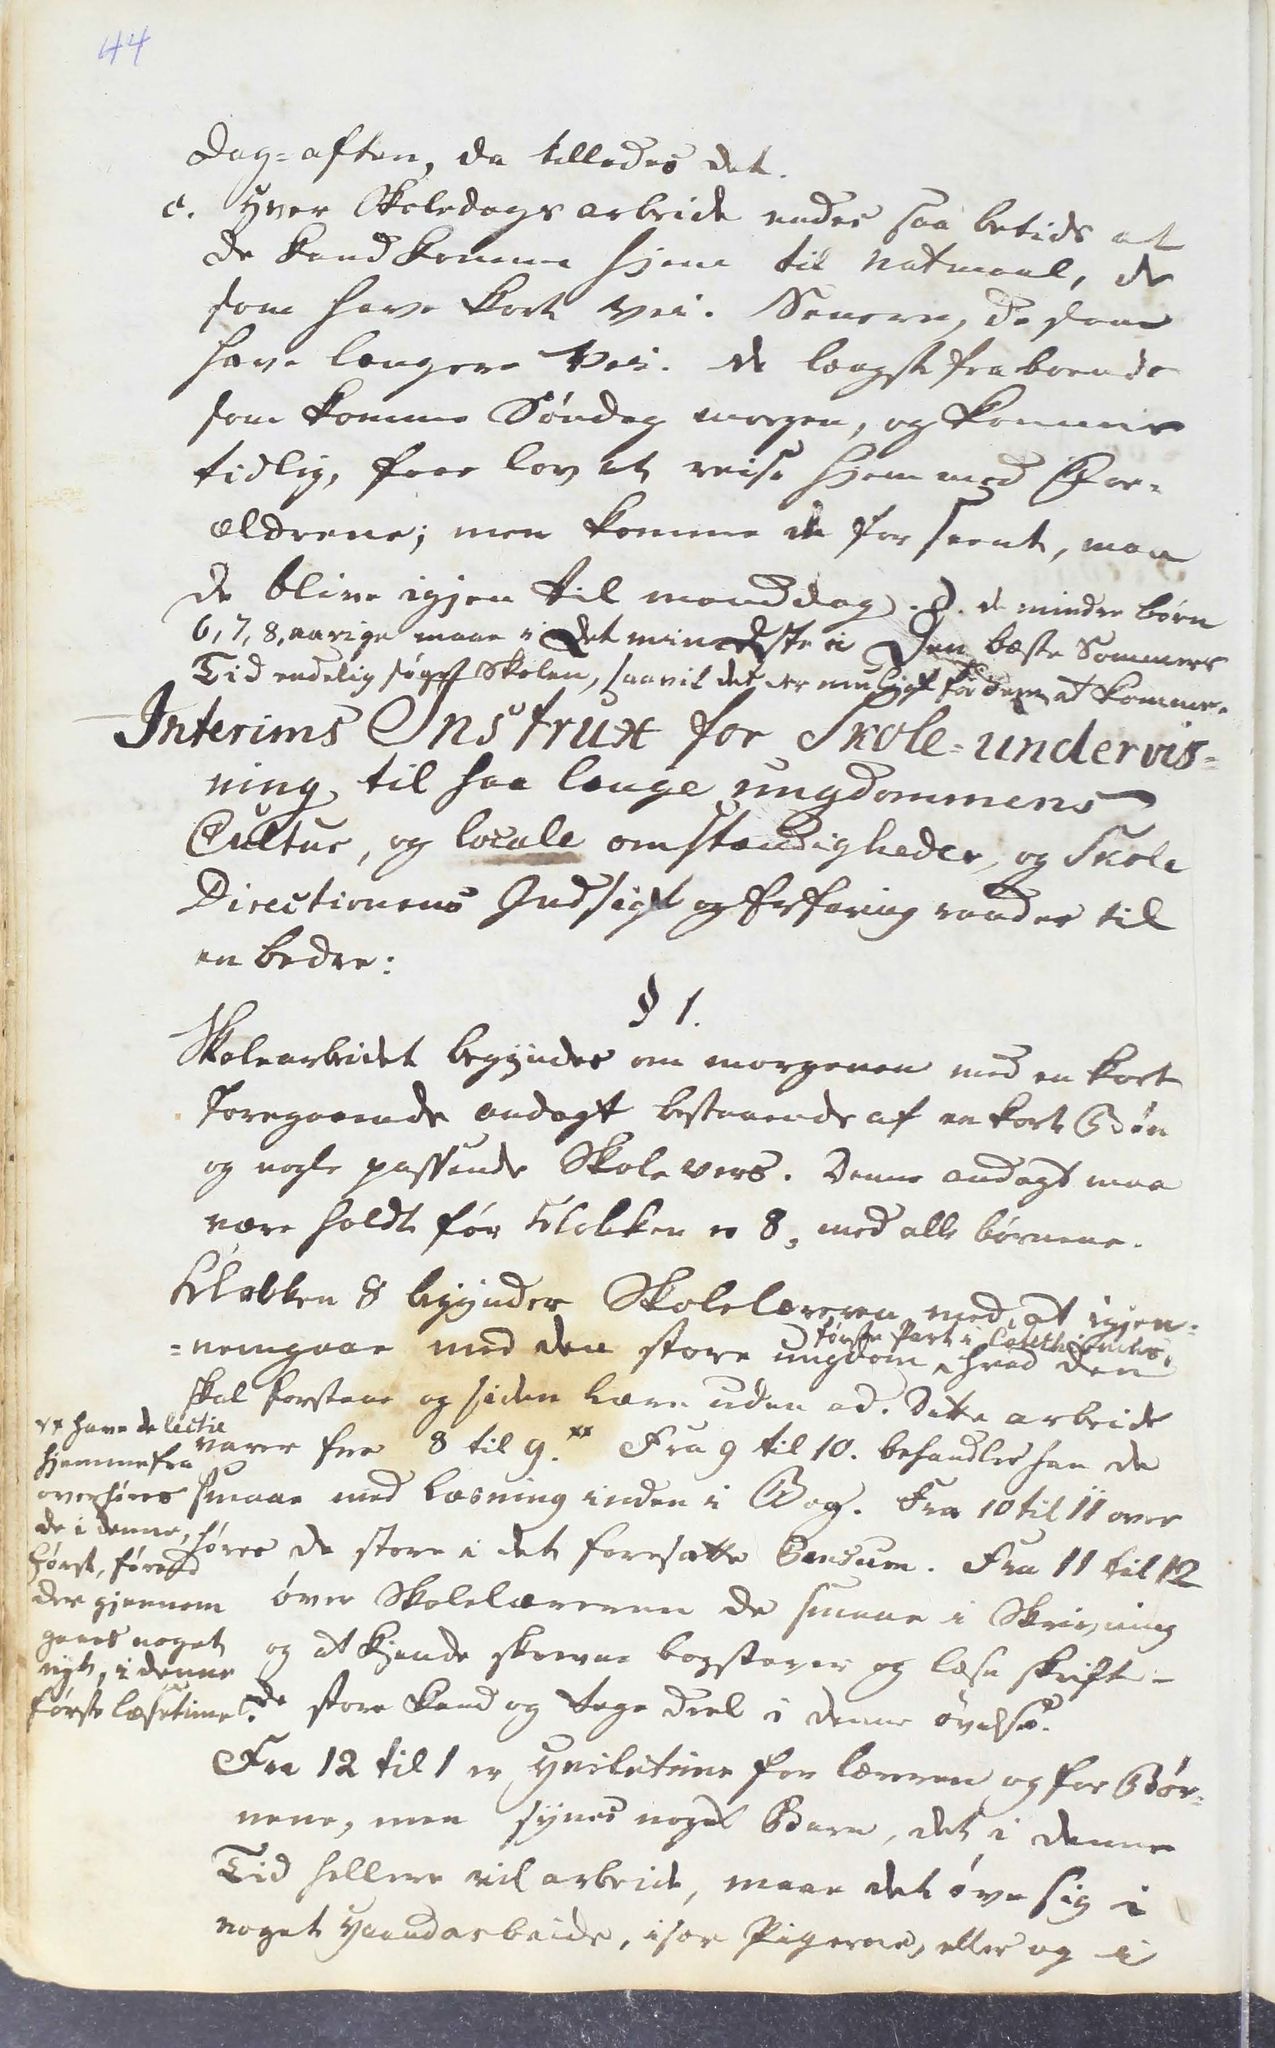 44
Dag=aften, da tillades det.
c. Hver Skoledags arbeide endes saa betids at
de kand komme hjem til natmaal, de
som have kort Vei. Senere, de som
have længere Vei. de længst fraboende
som komme Søndag morgen, og komme
tidlig, faae lov at reise hjem med For-
ældrene; men komme de for seent, maa
de blive igjen til manddag. d. de mindre børn
6, 7, 8, aarige maae i det mindste i den bæste Sommers
Tid endelig søge Skolen, saavit det er mueligt for dem at komme.
Interims Instrux for Skole=undervis=
ning, til saa længe ungdommens
Cultur, og locale omstændigheder, og Skole
Directionens Indsigt og Erfaring raader til
en bedre:
§ 1.
Skolearbeidet begyndes om morgenen med en kort
foregaaende andagt bestaaende af en kort Bøn
og nogle passende Skole vers. Denne andagt maa
være holdt før Klokken er 8, med alle børnene.
Klokken 8 begynder Skolelæreren med, at igjen-
første Part i Catechismus,
=nemgaae med den store ungdom, hvad den
skal forstaae og siden lære uden ad. Dette arbeide
varer fra 8 til 9.xx Fra 9 til 10. behandler han de
smaae med læsning inden i Bog. Fra 10 til 11 over
hører de store i det foresatte Pensum. Fra 11 til 12
øver Skolelæreren de smaae i Skrivning
og at kjende skrevne bogstaver og læse skrift -
de store kand og tage deel i denne øvelse.
xx have de lectie
hjemmefra
overhøres
de i denne,
først, førend
der gjennem
gaaes noget
nyt, i denne
første læsetime.
Fra 12 til 1 er Hviletime for læreren og for Bør-
nene, men synes noget Barn, det i denne
Tid hellere vil arbeide, maae det øve sig i
noget Haandarbeide, især Pigerne, eller og i